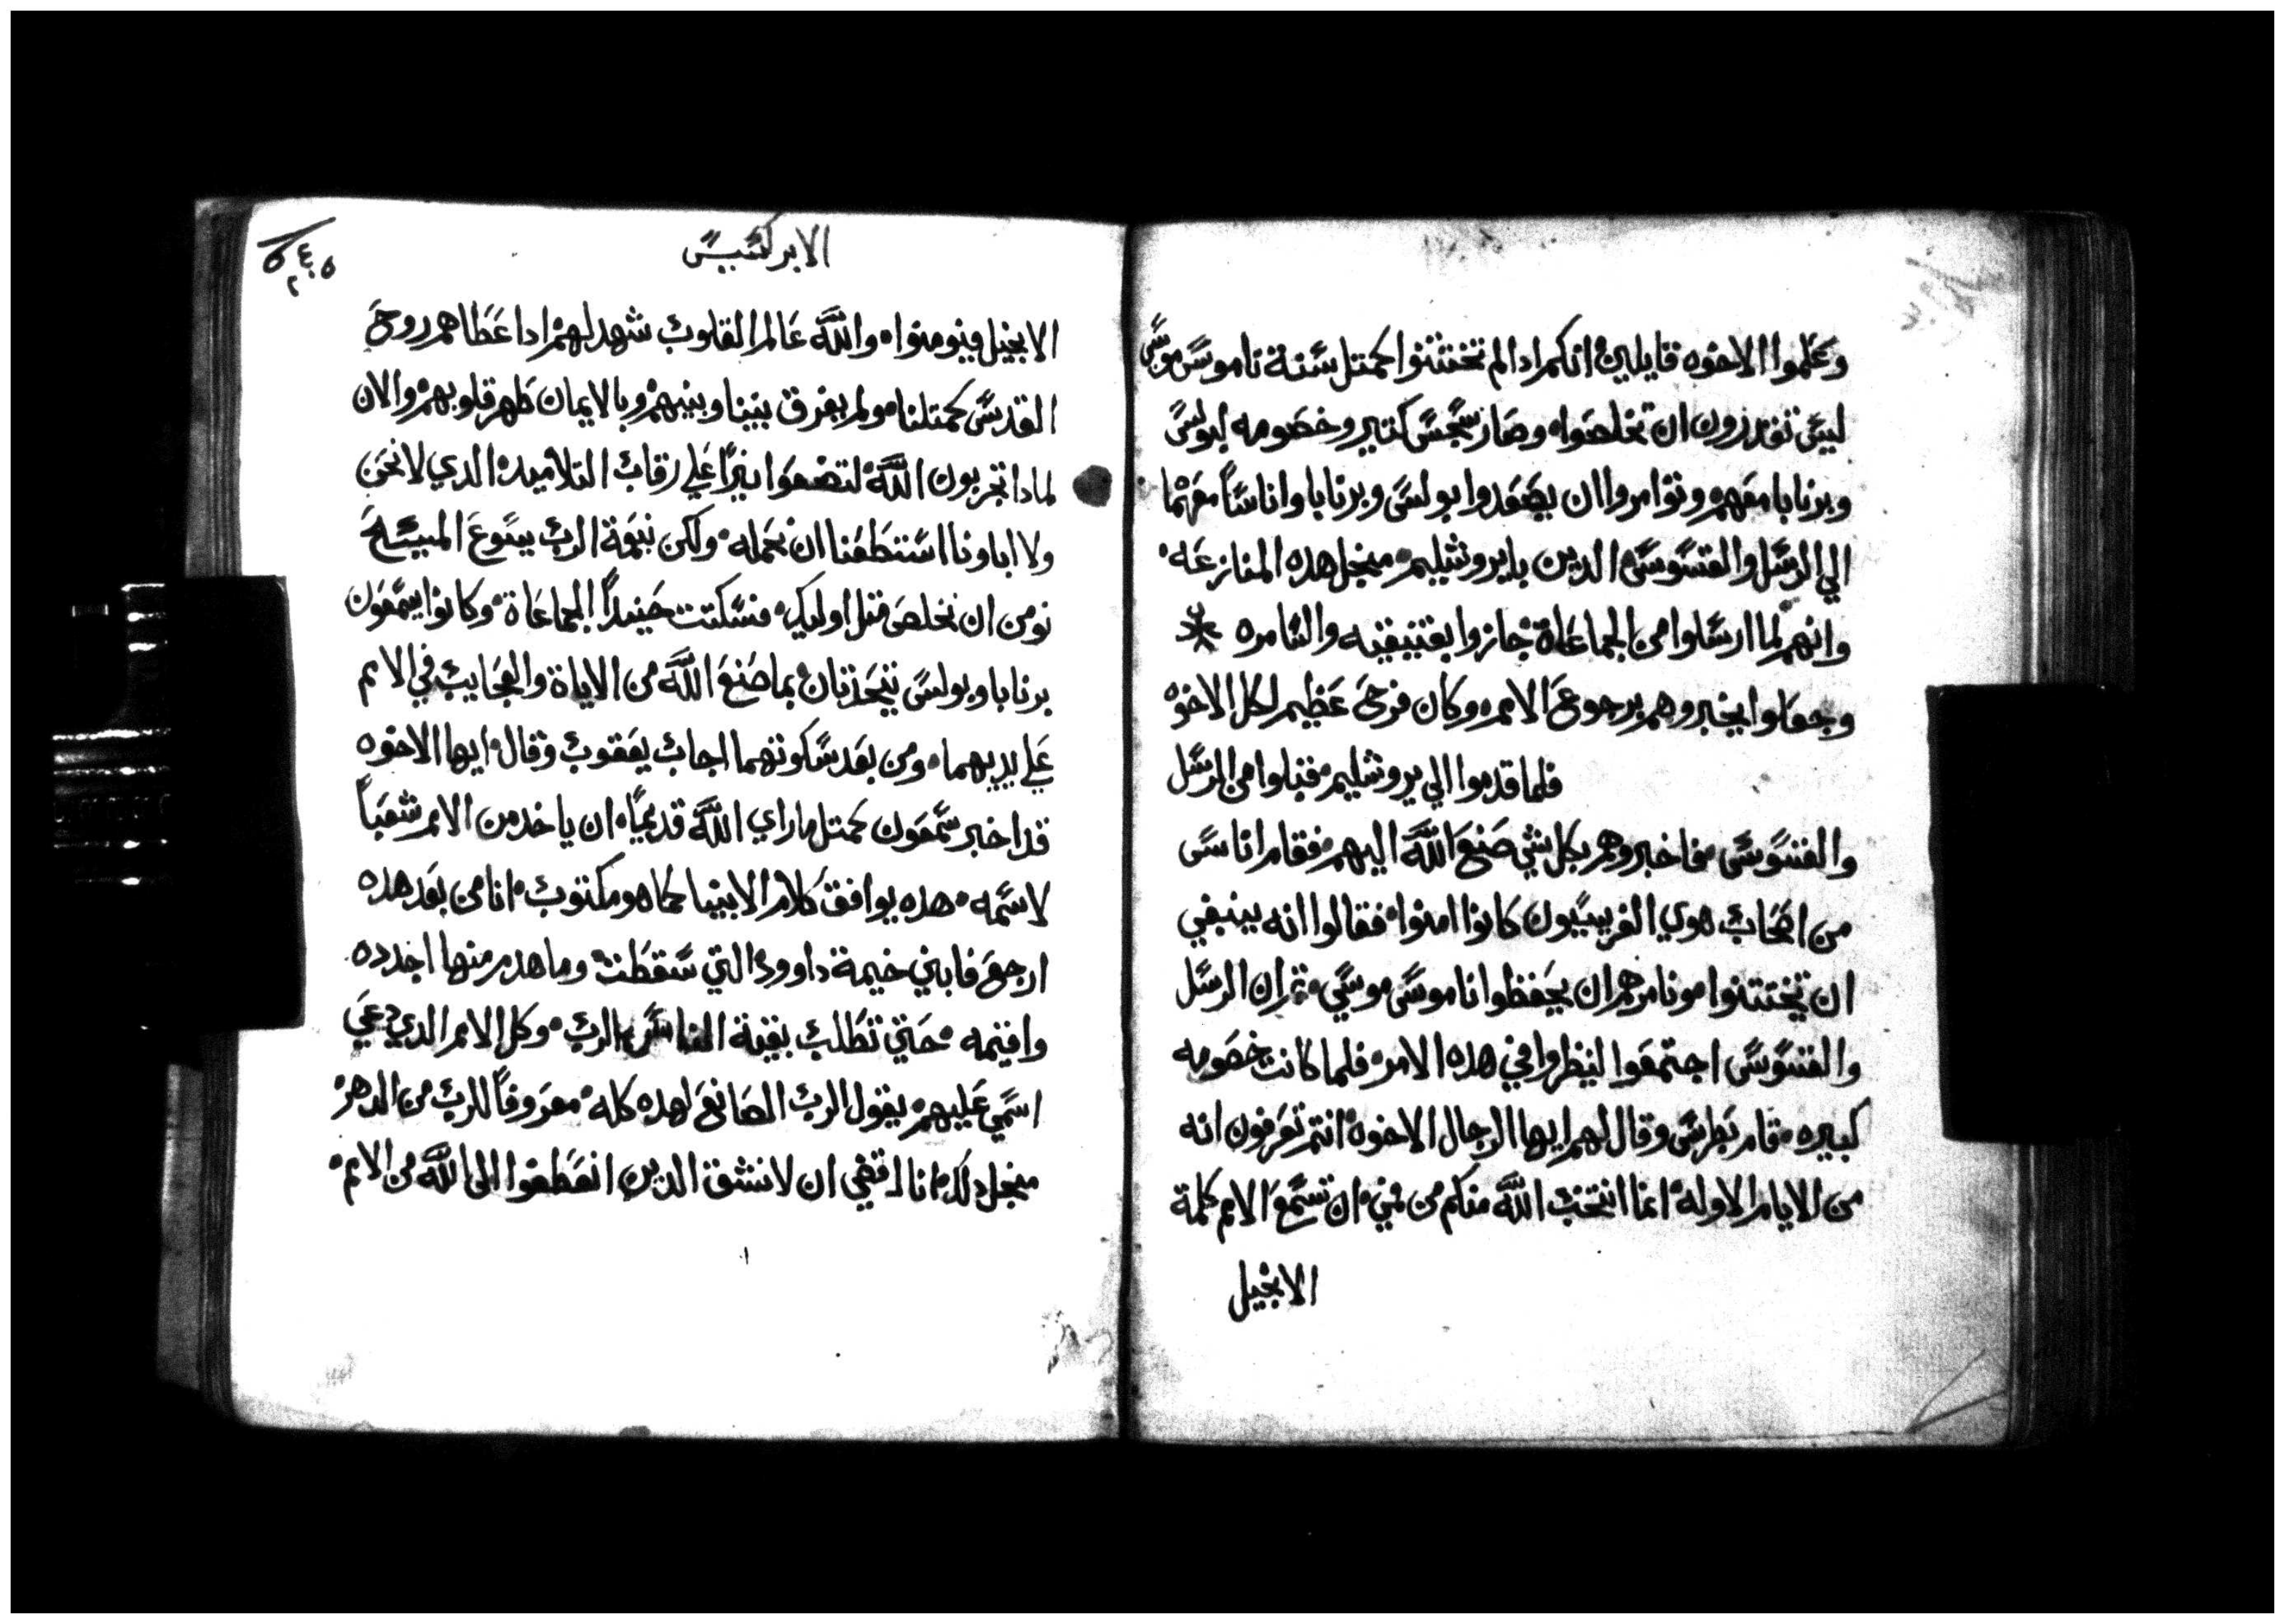 وعلموا الاخوه قايلين انكم ادا لم تختتنوا كمتل سنة ناموس موسي
ليس تقدرون ان تخلصوا وصار سجس كتير وخصومه لبولس
وبرنابا معهم وتوامروا ان يصعدوا بولس وبرنابا واناسا معهما
الي الرسل والقسوس الدين بايروشليم منجل هده المنازعه
وانهم لما ارسلوا من الجماعاة جازوا بفنيقيه والسامره
وجعلوا يخبروهم برجوع الامم وكان فرح عظيم لكل الاخوه
فلما قدموا الي يروشليم فقبلوا من الرسل
والقسوس فاخبروهم بكل شي صنع الله اليهم فقام اناس
من اصحاب هوي الفريسيون كانوا امنوا فقالوا انه ينبغي
ان تختتنوا ونامرهم ان يحفظوا ناموس موسي ثم ان الرسل
والقسوس اجتمعوا لينظروا في هده الامر فلما كانت خصومه
كبيره قام بطرس وقال لهم ايها الرجال الاخوه انتم تعرفون انه
من الايام الاوله انما انتخب الله منكم من فمي ان تسمع الامم كلمة
الانجيل
الابركسيس
الانجيل فيومنوا والله عالم القلوب شهد لهم ادا عطاهم روح
القدس كمتلنا ولم يفرق بيننا وبينهم وبالايمان طهر قلوبهم والان
لمادا تجربون الله لتضعوا نيرا علي رقاب التلاميده الدي لا نحن
ولا اباونا استطعنا ان نحمله ولكن بنعمة الرب يسوع المسيح
نومن ان نخلص متل اوليك فسكتت حينيدا الجماعاة وكانوا يسمعون
برنابا وبولس يتحدتان بما صنع الله من الاياة والعجايب في الامم
علي يديهما ومن بعد سكوتهما اجاب يعقوب وقال ايها الاخوه
قد اخبر سمعون كمتل ما راي الله قديما ان ياخد من الامم شعبا
لاسمه هده يوافق كلام الانبيا كما هو مكتوب انا من بعد هده
ارجع فابني خيمة داوود التي سقطت وما هدم منها اجدده
واقيمه حتي تطلب بقية الناس الرب وكل الامم الدي دعي
اسمي عليهم يقول الرب الصانع لهده كله معروفا للرب من الدهر
منجل دلك انا اقضي ان لا نشق الدين انعطفوا الي الله من الامم